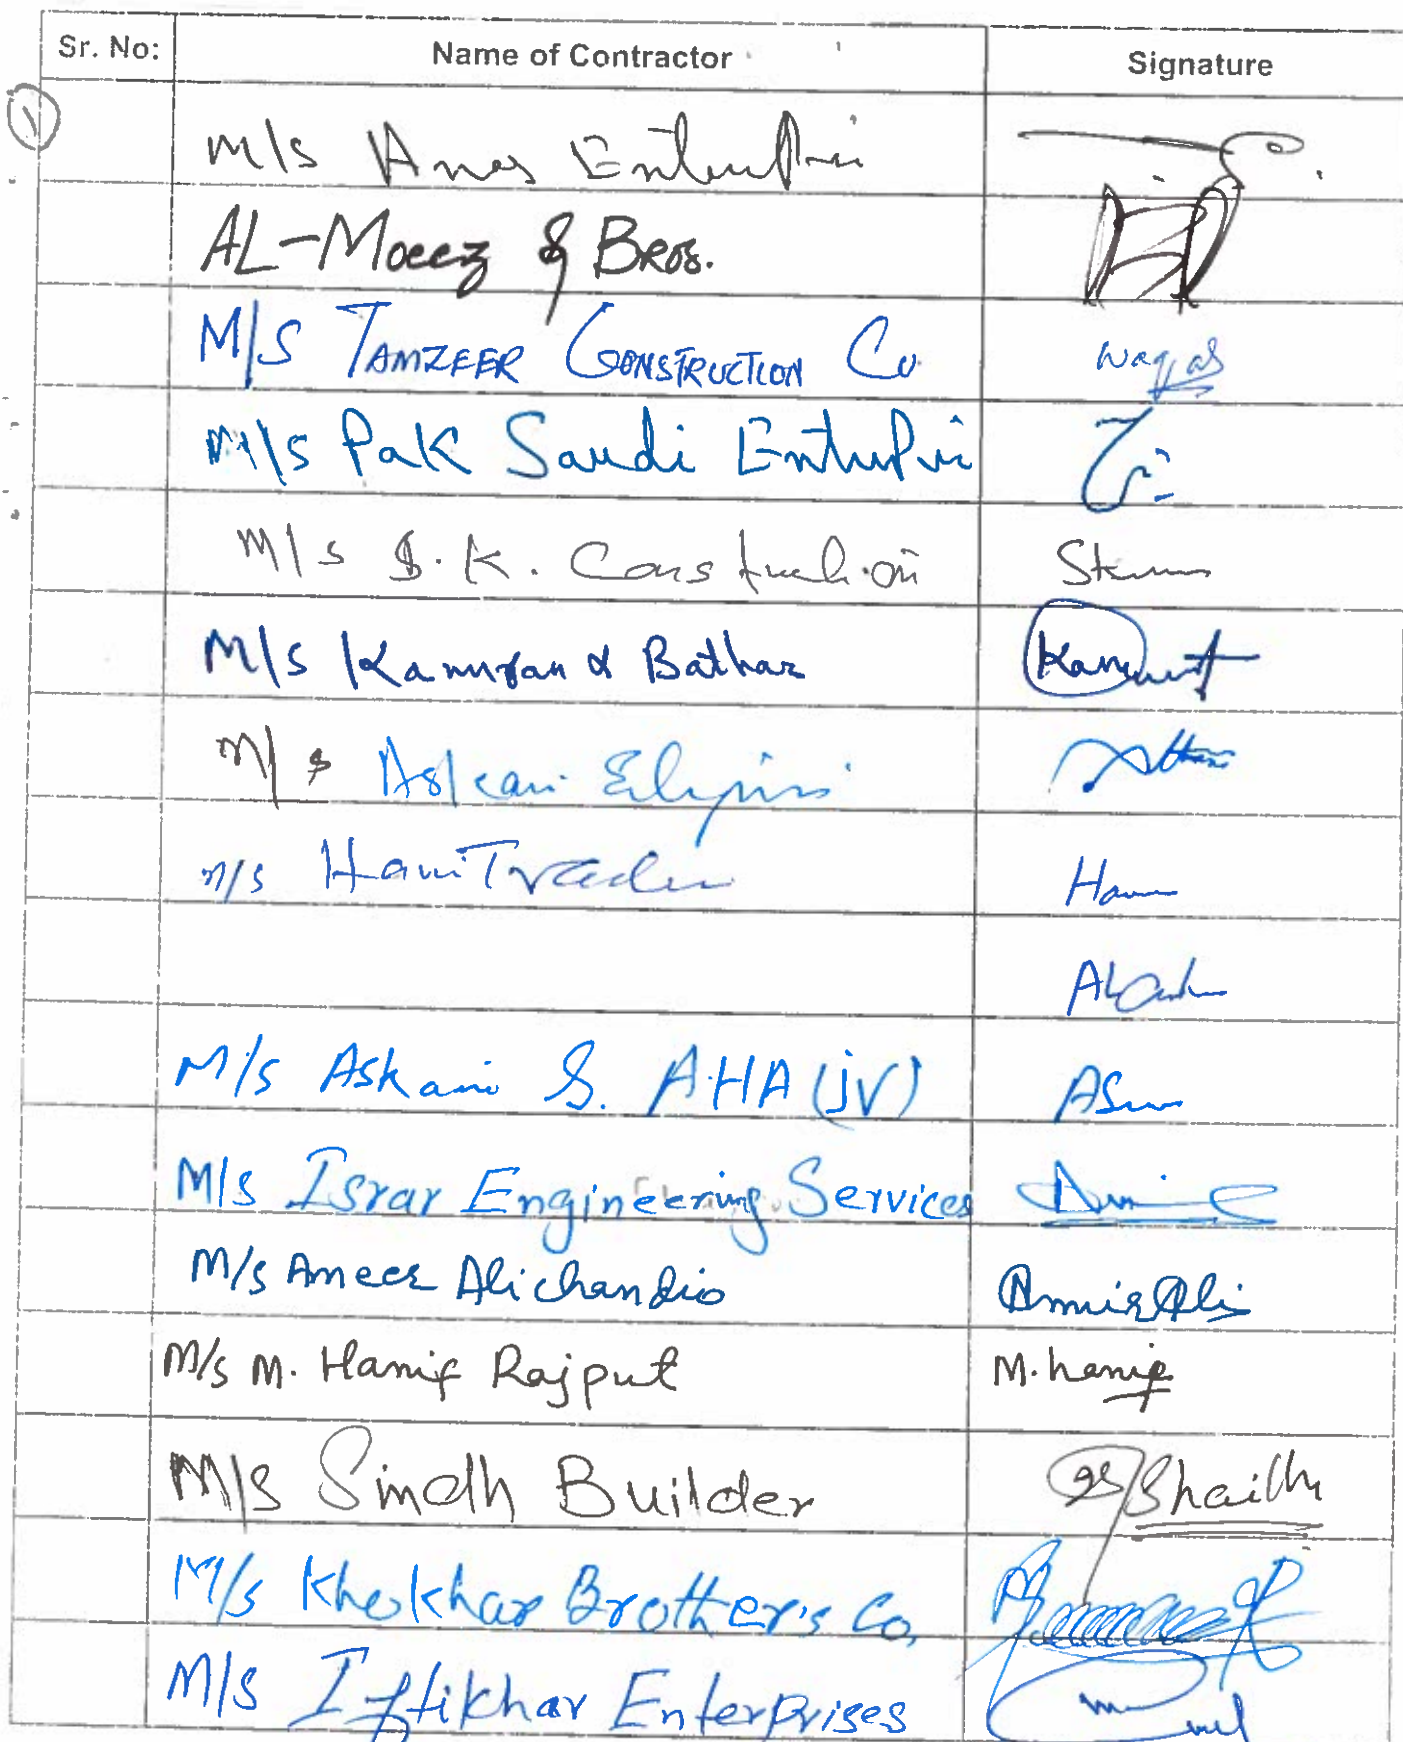 Sr. No: Name of Contractor Signature
1
M/S Anas Enterpri
AL-Moeez & Bros.
M/S TAMZEER CONSTRUCTION Co. Waqas
M/S Pak Saudi Enterpri
M/S S.K. Construction
M/S Kamran & Bathar Kam
M/S Askari
M/S Hani Trader Han
M/S Askari & AHA (JV)
M/S Israr Engineering Services
M/S Ameer Ali chandio Amir Ali
M/S M. Hanif Rajput M. hanif
M/S Sindh Builder Shaikh
M/S Khokhar Brother's Co.
M/S Iftikhar Enterprises